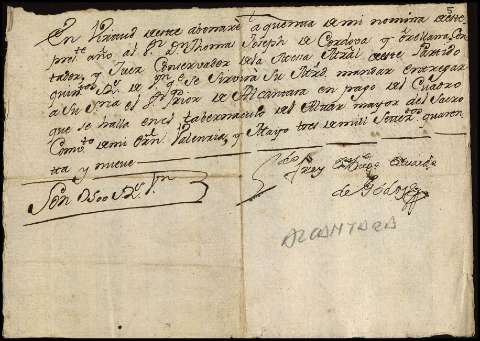 En Virtud de este abonaré a quenta de mi nomina de este
pres.te año al S.r D.n Thomas Joseph de Cordova y Orellana Con
tador, y Juez Conservador de la Mesa Mrâl de este Partido
quin.tos R.s de V.n q.e se Servirá Su Mrd. mandar entregar
a Su Sria el S.r Prior de Alcantara en pago del Cuadro
que se halla en el tabernaculo del Altar mayor del Sacro
Comv.to de mi Orn. Valencia, y Mayo tres de mil Setez.tos quaren
ta y nueve
Son D500 R.s V.n
Frey Eduardo
de Godoy
ALCANTARA